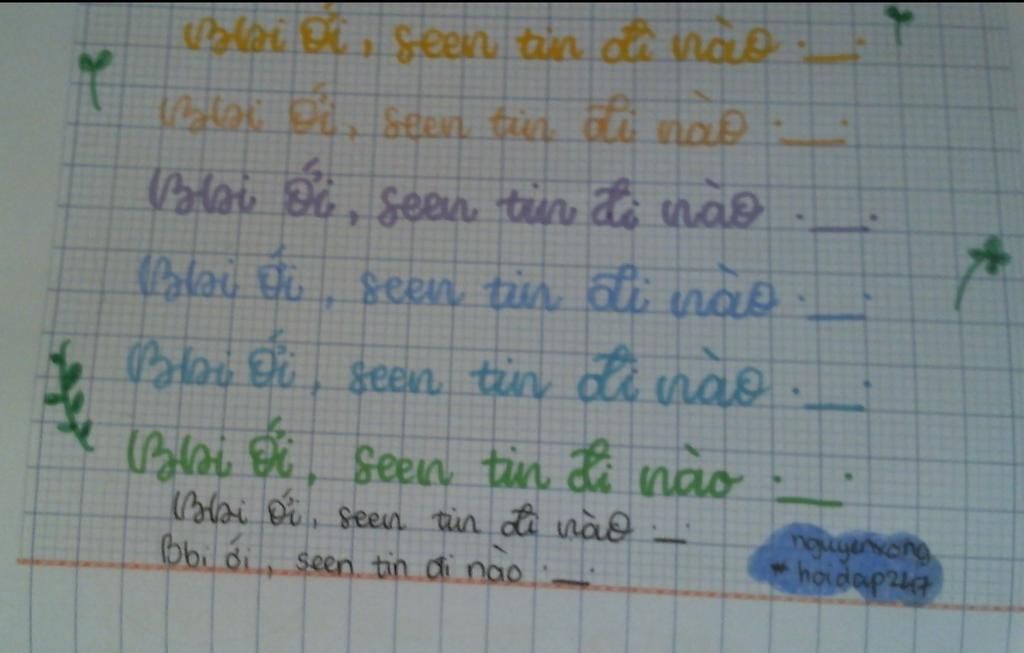 Bbi ới, seen tin đi nào ._.
Bbi ới, seen tin đi nào ._.
Bbi ới, seen tin đi nào ._.
Bbi ới, seen tin đi nào ._.
Bbi ới, seen tin đi nào ._.
Bbi ới, seen tin đi nào ._.
Bbi ới, seen tin đi nào ._.
Bbi ới, seen tin đi nào ._.
hoidap247